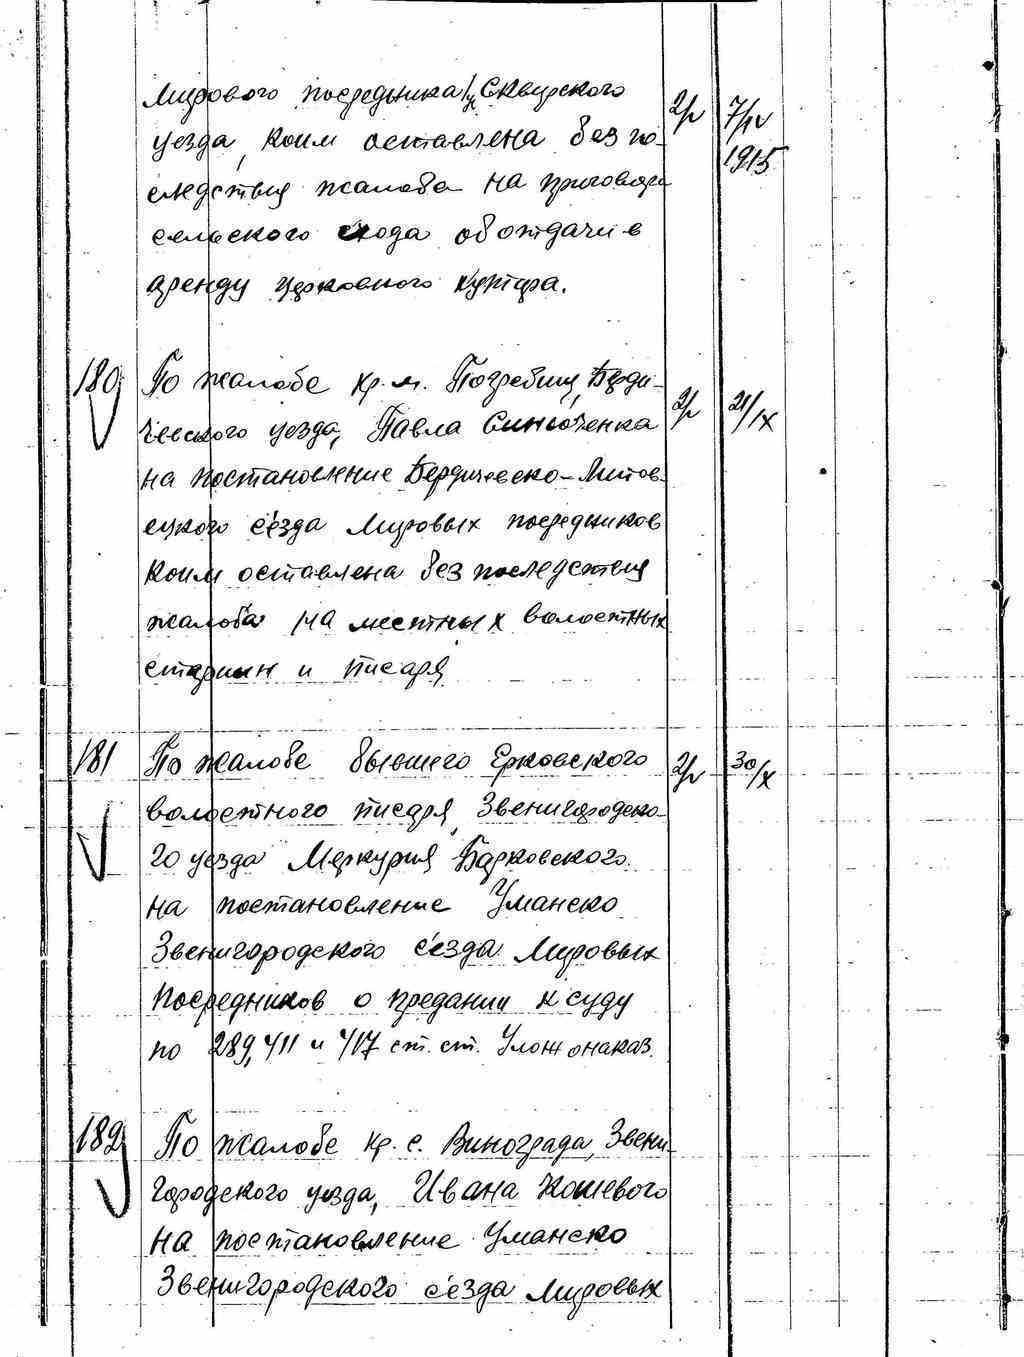 Мирового посредника Сквирского
2р 7/IV
уезда, коим оставлена без по-
1915
следствия жалоба на приговора
сельского схода об отдачи в
аренду церковного хутора.
180 По жалобе кр. м. Погребищ, Берди-
2р 21/IX
чевского уезда, Павла Синюченка
на постановление Бердичевско-Липов-
ецкого с'езда Мировых посредников
коим оставлена без последствия
жалоба на местных волостных
старшин и писаря
181 По жалобе бывшего Ерковского
2р 30/X
волостного писаря, Звенигородско-
го уезда Меркурия Барковского
на постановление Уманско
Звенигородского с'езда Мировых
Посредников о предании к суду
по 289, 411 и 417 ст. ст. Улож о наказ.
182 По жалобе кр. с. Винограда, Звени-
городского уезда, Ивана Кошевого
на постановление Уманско
Звенигородского с'езда Мировых